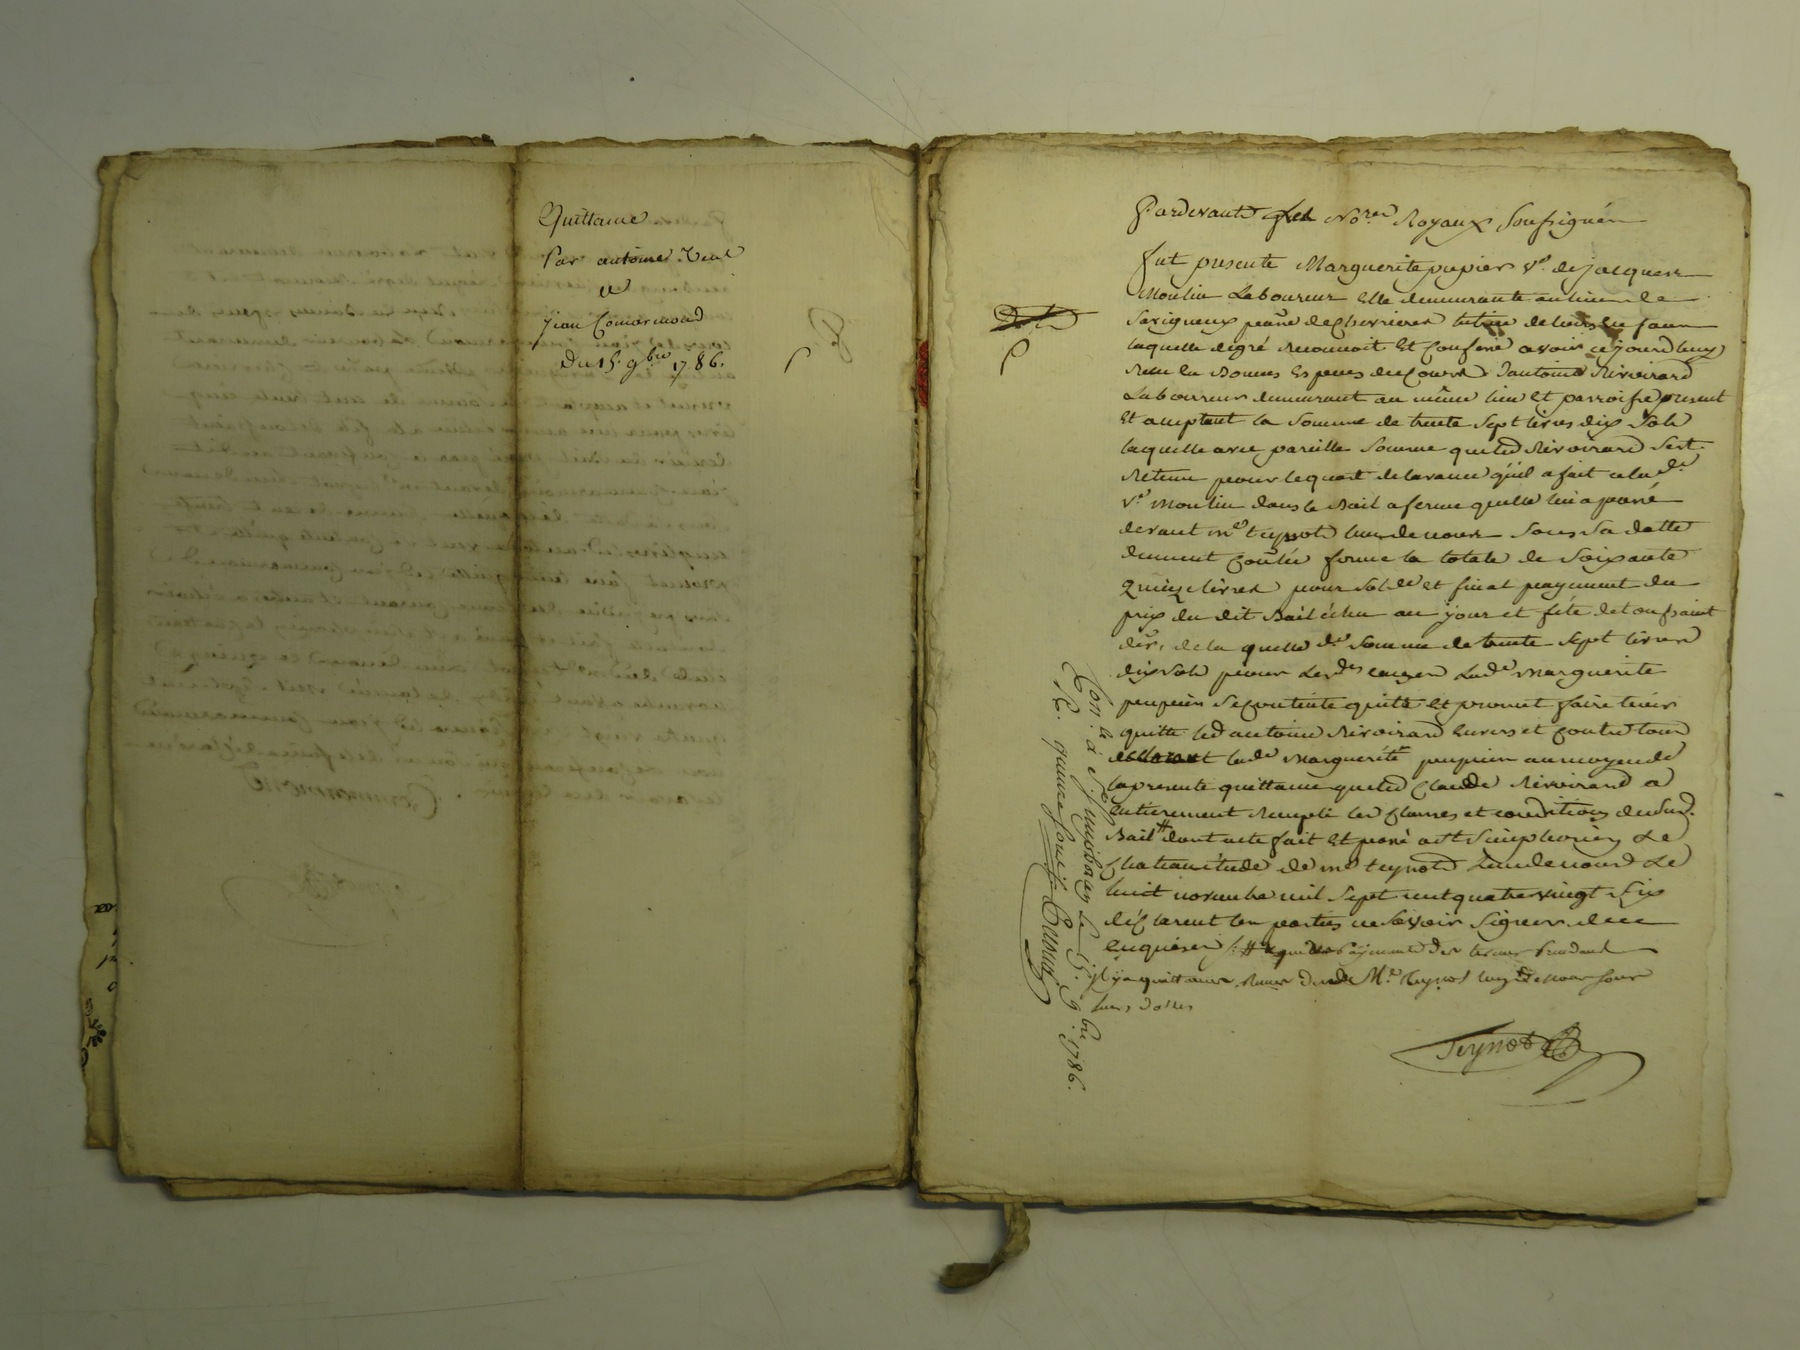 Quittance
Par antoine Viul
a
jean Comarmond
Du 15. 9.bre 1786.
Pardevant les No.res Royaux soussignés
fut presente Marguerite pupier v.e de jacques
Moulin Laboureur Elle demeurante au lieu de
Savigneux p
laquelle de gré reconnoit Et Confesse avoir cejourd'huy
Reçu En Bonnes Especes de Cours d'antoine Rivoirard
Laboureur demeurant au même lieu et parroisse present
Et acceptant la Somme de trente Sept livres dix Sols
laquelle avec pareille Somme que led Rivoirard s'est
Retenu pour le quart de lavance qu'il a fait a lad.e
v.e Moulin dans le Bail a ferme quelle lui a passé
devant m.e teyssot lun de nous Sous Sa datte
duement Contrôlé forme la totale de Soixante
Quinze livres pour Solde et final payement du
prix du dit Bail échu au jour et fête de toussaint
der. de la quelle d.e Somme de trente Sept livres
dix Sols pour les d.es causes Lad.e Marguerite
pupier Se Contente quitte Et promet faire tenir
quitte led antoine Rivoirard Envers et Contre tous
declarant lad.e Marguerite pupier au moyen de
la presente quittance que led Claude Rivoirard a
Entierement Rempli les Clauses et conditions dudit
Bail # dont acte fait Et passé a St Simphorien Le
Chateau étude de m.e teyssot Lun de nous Le
huit novembre mil Sept cent quatre vingt Six
déclarent les parties ne Savoir Signer de ce
Enquises /: # que payements des termes
il y a quittance Reçue dud. M.e teyssot lug de nous sous
leurs dattes
Teyssot
Con. lé à S.t Simphorien Le 15. 9.bre 1786.
R. quinze sous